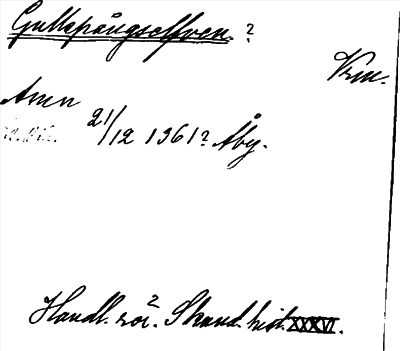 Gullspångselfven. ?
Vrm.
Amn
21/12 1361? Åby.
Handl. rör. Skand. hist. XXXVI.